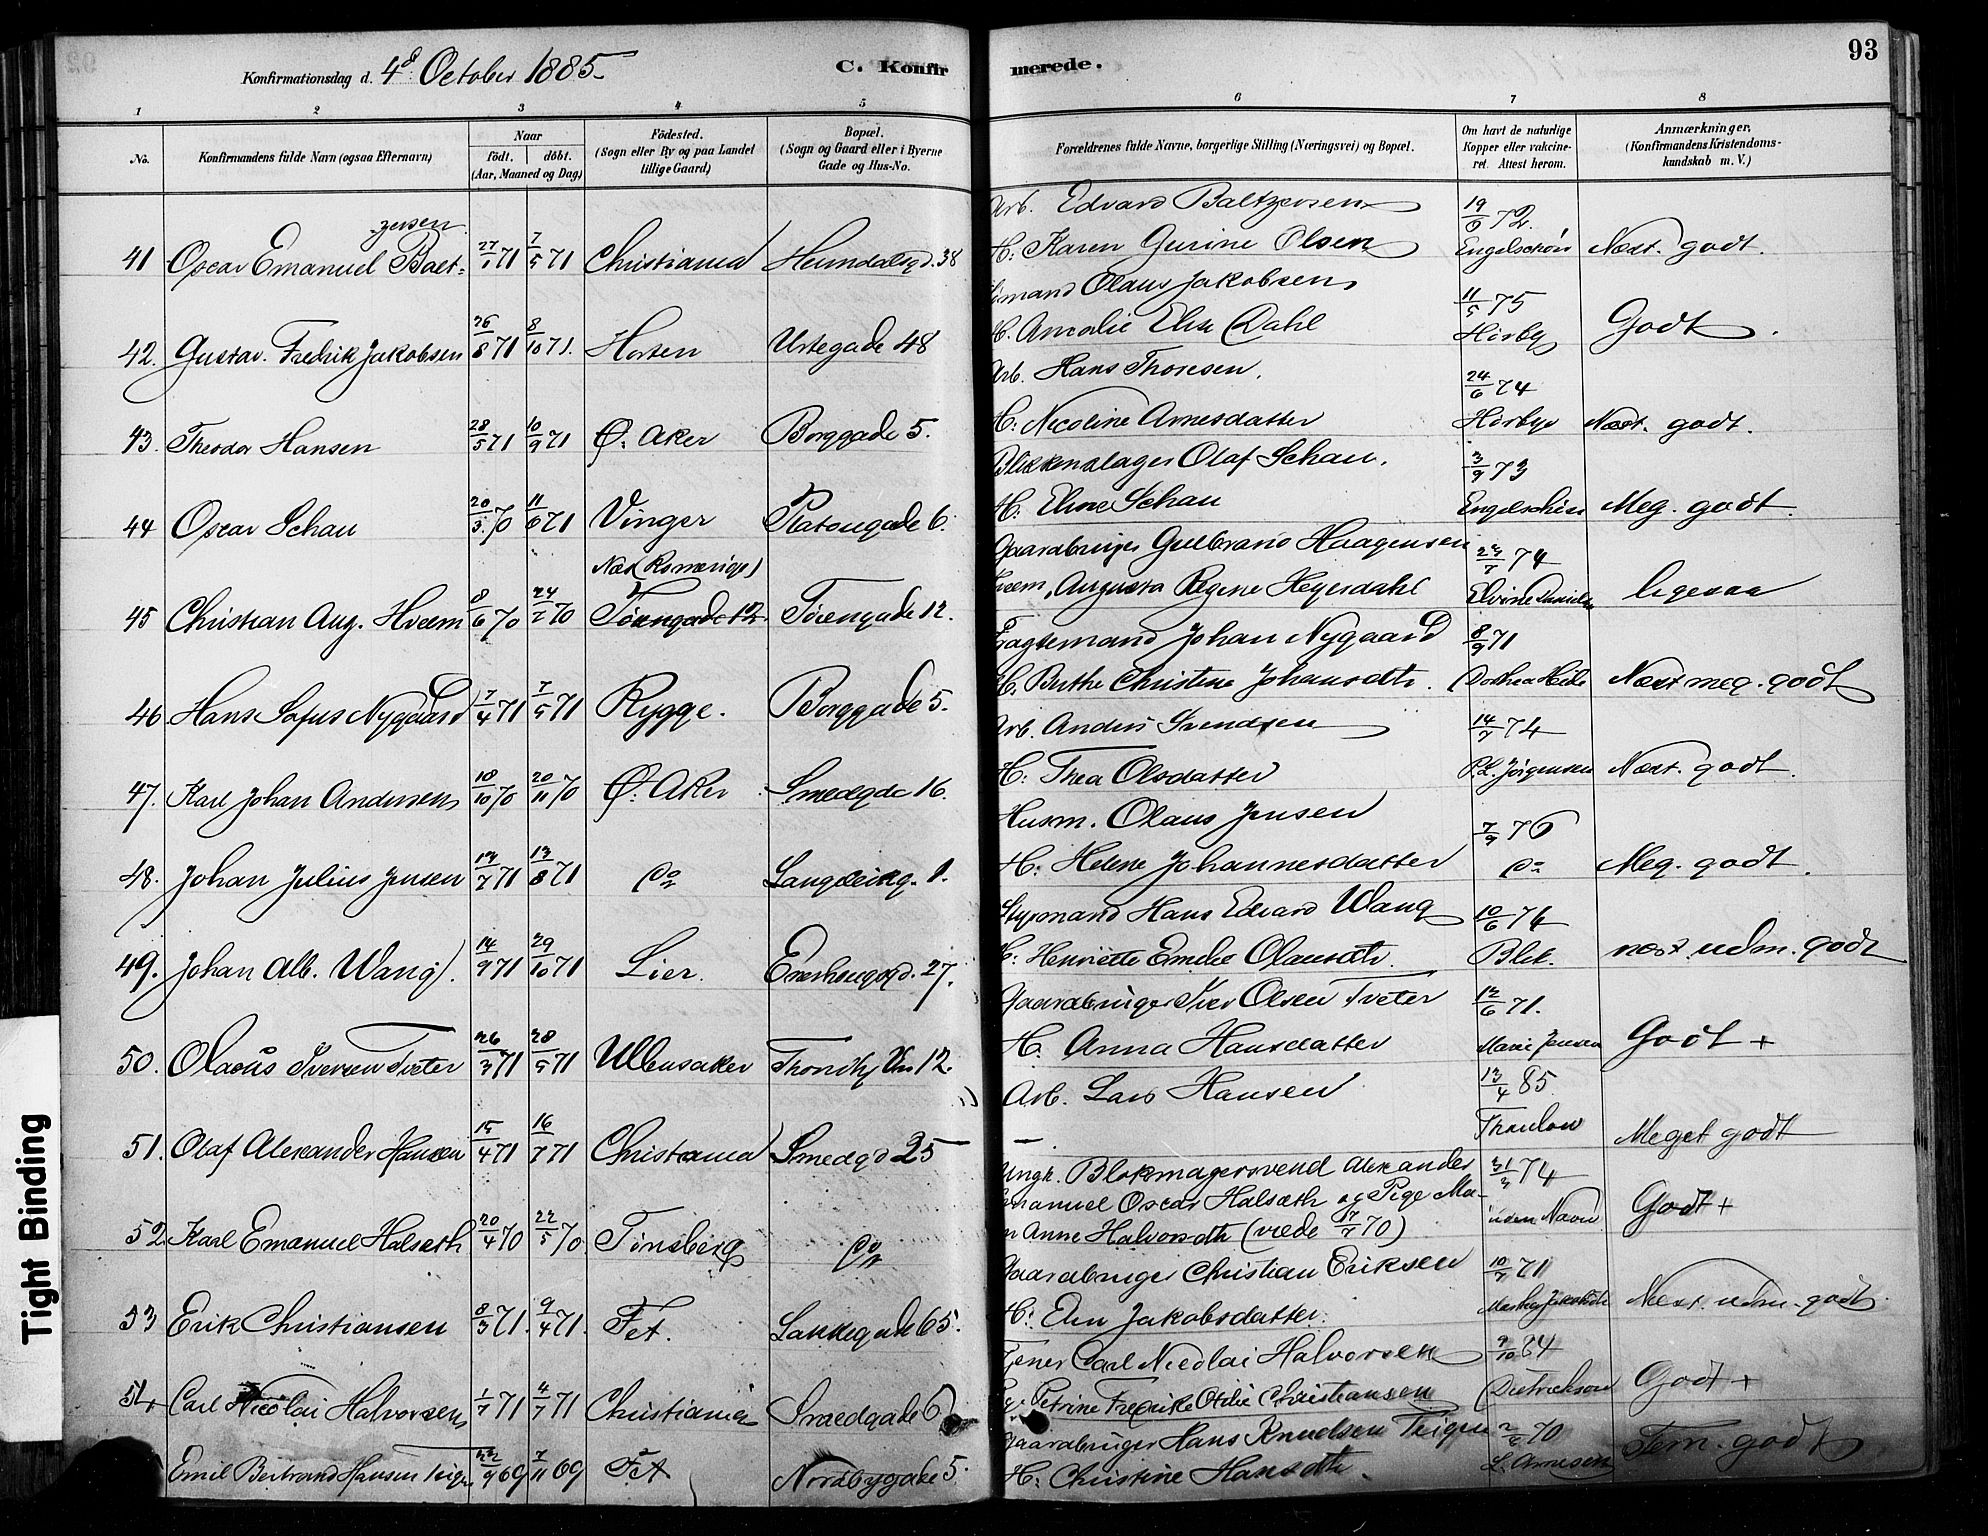 93
Konfirmationsdag d. 4de October 1885
C. Konfirmerede.
1 2 3 4 5 6 7 8
No.
Konfirmandens fulde Navn (ogsaa Efternavn)
Naar
födt. döbt.
(Aar, Maaned og Dag)
Födested.
(Sogn eller By og paa Landet
tillige Gaard)
Bopæl.
(Sogn og Gaard eller i Byerne
Gade og Hus-No.
Forældrenes fulde Navne, borgerlige Stilling (Næringsvei) og Bopæl.
Om havt de naturlige
Kopper eller vakcine-
ret. Attest herom.
Anmærkninger,
(Konfirmandens Kristendoms-
kundskab m. V.)
Arb. Edvard Baltzersen 19/6 72.
zersen
41 Oscar Emanuel Balt- 27/1 71 7/5 71 Christiania Heimdalsgd. 38 H: Karen Gurine Olsen Engelschøn Næst. godt.
Olaus Jakobsen 11/5 75
42. Gustav. Fredrik Jakobsen 26/8 71 8/10 71. Horten Urtegade 48 H. Amalie Elise Dahl Hörbye Godt.
Arb. Hans Thoresen. 24/6 74
43. Theodor Hansen 28/5 71 10/9 71 Ø. Aker Borggade 5. H: Nicoline Arnesdatter Hörbye Næst. godt.
Blikkenslager Olaf Schau. 3/9 73
44 Oscar Schau 20/3 70 11/6 71 Vinger Platougade 6. H: Eline Schau Engelschøn Meg. godt.
Gaardbruger Gulbrand Haagensen 23/7 74
Næs (Romerige)
45 Christian Aug. Hveem 8/6 70 24/7 70 Töiengade 12 Töiengade 12. Hveem, Augusta Regine Heyerdahl Elvine Danielsen ligesaa
Fragtemand Johan Nygaard 8/9 71
46 Hans Sofus Nygaard 7/4 71 7/5 71 Rygge. Borggade 5. H. Berthe Christine Johansdtr. Dorthea Heide Næst meg. godt
Arb. Anders Svendsen 14/7 74
47. Karl Johan Andersen 18/10 70 20/11 70 Ø. Aker Smedgde 16. H: Thea Olsdatter P.L. Jörgensen Næst. godt.
Husm. Olaus Jensen 7/9 76
48. Johan Julius Jensen 13/7 71 13/8 71 Do Langleikg. 1. H: Helene Johannesdatter Do Meg. godt.
Styrmand Hans Edvard Wang 10/6 74
49. Johan Alb. Wang. 14/9 71 29/10 71 Lier. Enerhauggd. 27. H: Henriette Emilie Olausdtr. Blik. næst. udm. godt
Gaardbruger Iver Olsen Tveter 12/6 71.
50. Olaus Iversen Tveter 26/3 71 28/5 71 Ullensaker Throndhj Vn 12. H. Anna Hansdatter Marie Jensen Godt +
Arb. Lars Hansen 13/4 85
51. Olaf Alexander Hansen 15/4 71 16/7 71 Christiania Smedgd 25 — Thaulow Meget godt
Ungk. Blokmagersvend Alexander 31/3 74
Emanuel Oscar Halseth og Pige Ma-
52. Karl Emanuel Halseth 20/4 70 22/5 70 Tönsberg Do Anne Halvorsdtr (viede 17/7 70) uden Navn Godt +
Gaardbruger Christian Eriksen 10/7 71
53 Erik Christiansen 8/3 71. 9/4 71. Fet. Lakkegade 65. H: Elen Jakobsdatter. Næst. udm. godt
Tjener Carl Nicolai Halvorsen 9/10 84
54 Carl Nicolai Halvorsen 1/7 71 4/7 71 Christiania Smedgade 6 Petrine Fredrike Otilie Christiansen Dietrichson Godt +
Gaardbruger Hans Knudsen Teigen 70
Emil Bertrand Hansen Teigen 22/9 69 7/11 69 Fet Nordbygade 5. H: Christine Hansdtr. L. Arnesen Tem. godt
Tight Binding